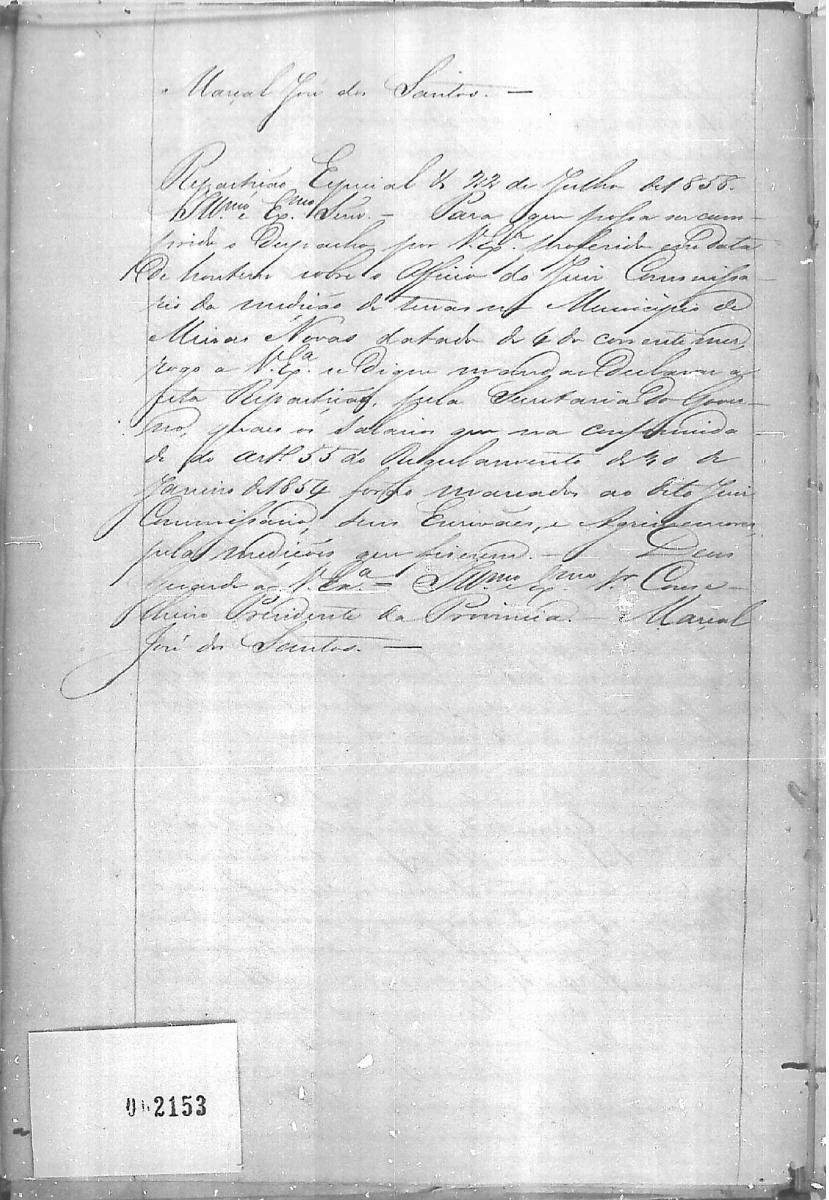 Marçal José dos Santos. —
Repartição Especial 22 de Julho de 1858.
Illmo e Exmo Senr. — Para que possa ser cum-
prido o Despacho por V. Exa. proferido em data
de hontem sobre o Officio do Juiz Commissa-
rio da medição de terras no Municipio de
Minas Novas datado de 4 do corrente mez,
rogo a V. Exa. se digne mandar declarar a
esta Repartição, pela Secretaria do Gover-
no, quaes os salarios que na conformida-
de do artº 55 do Regulamento de 30 de
Janeiro de 1854 forão marcados ao dito Juiz
Commissario, seus Escrivães, e Agrimensores,
pela medições que fizerem. — Deus
guarde a V. Exa. — Illmo e Exmo Sr. Conse-
lheiro Presidente da Provincia. — Marçal
José dos Santos. —
2153